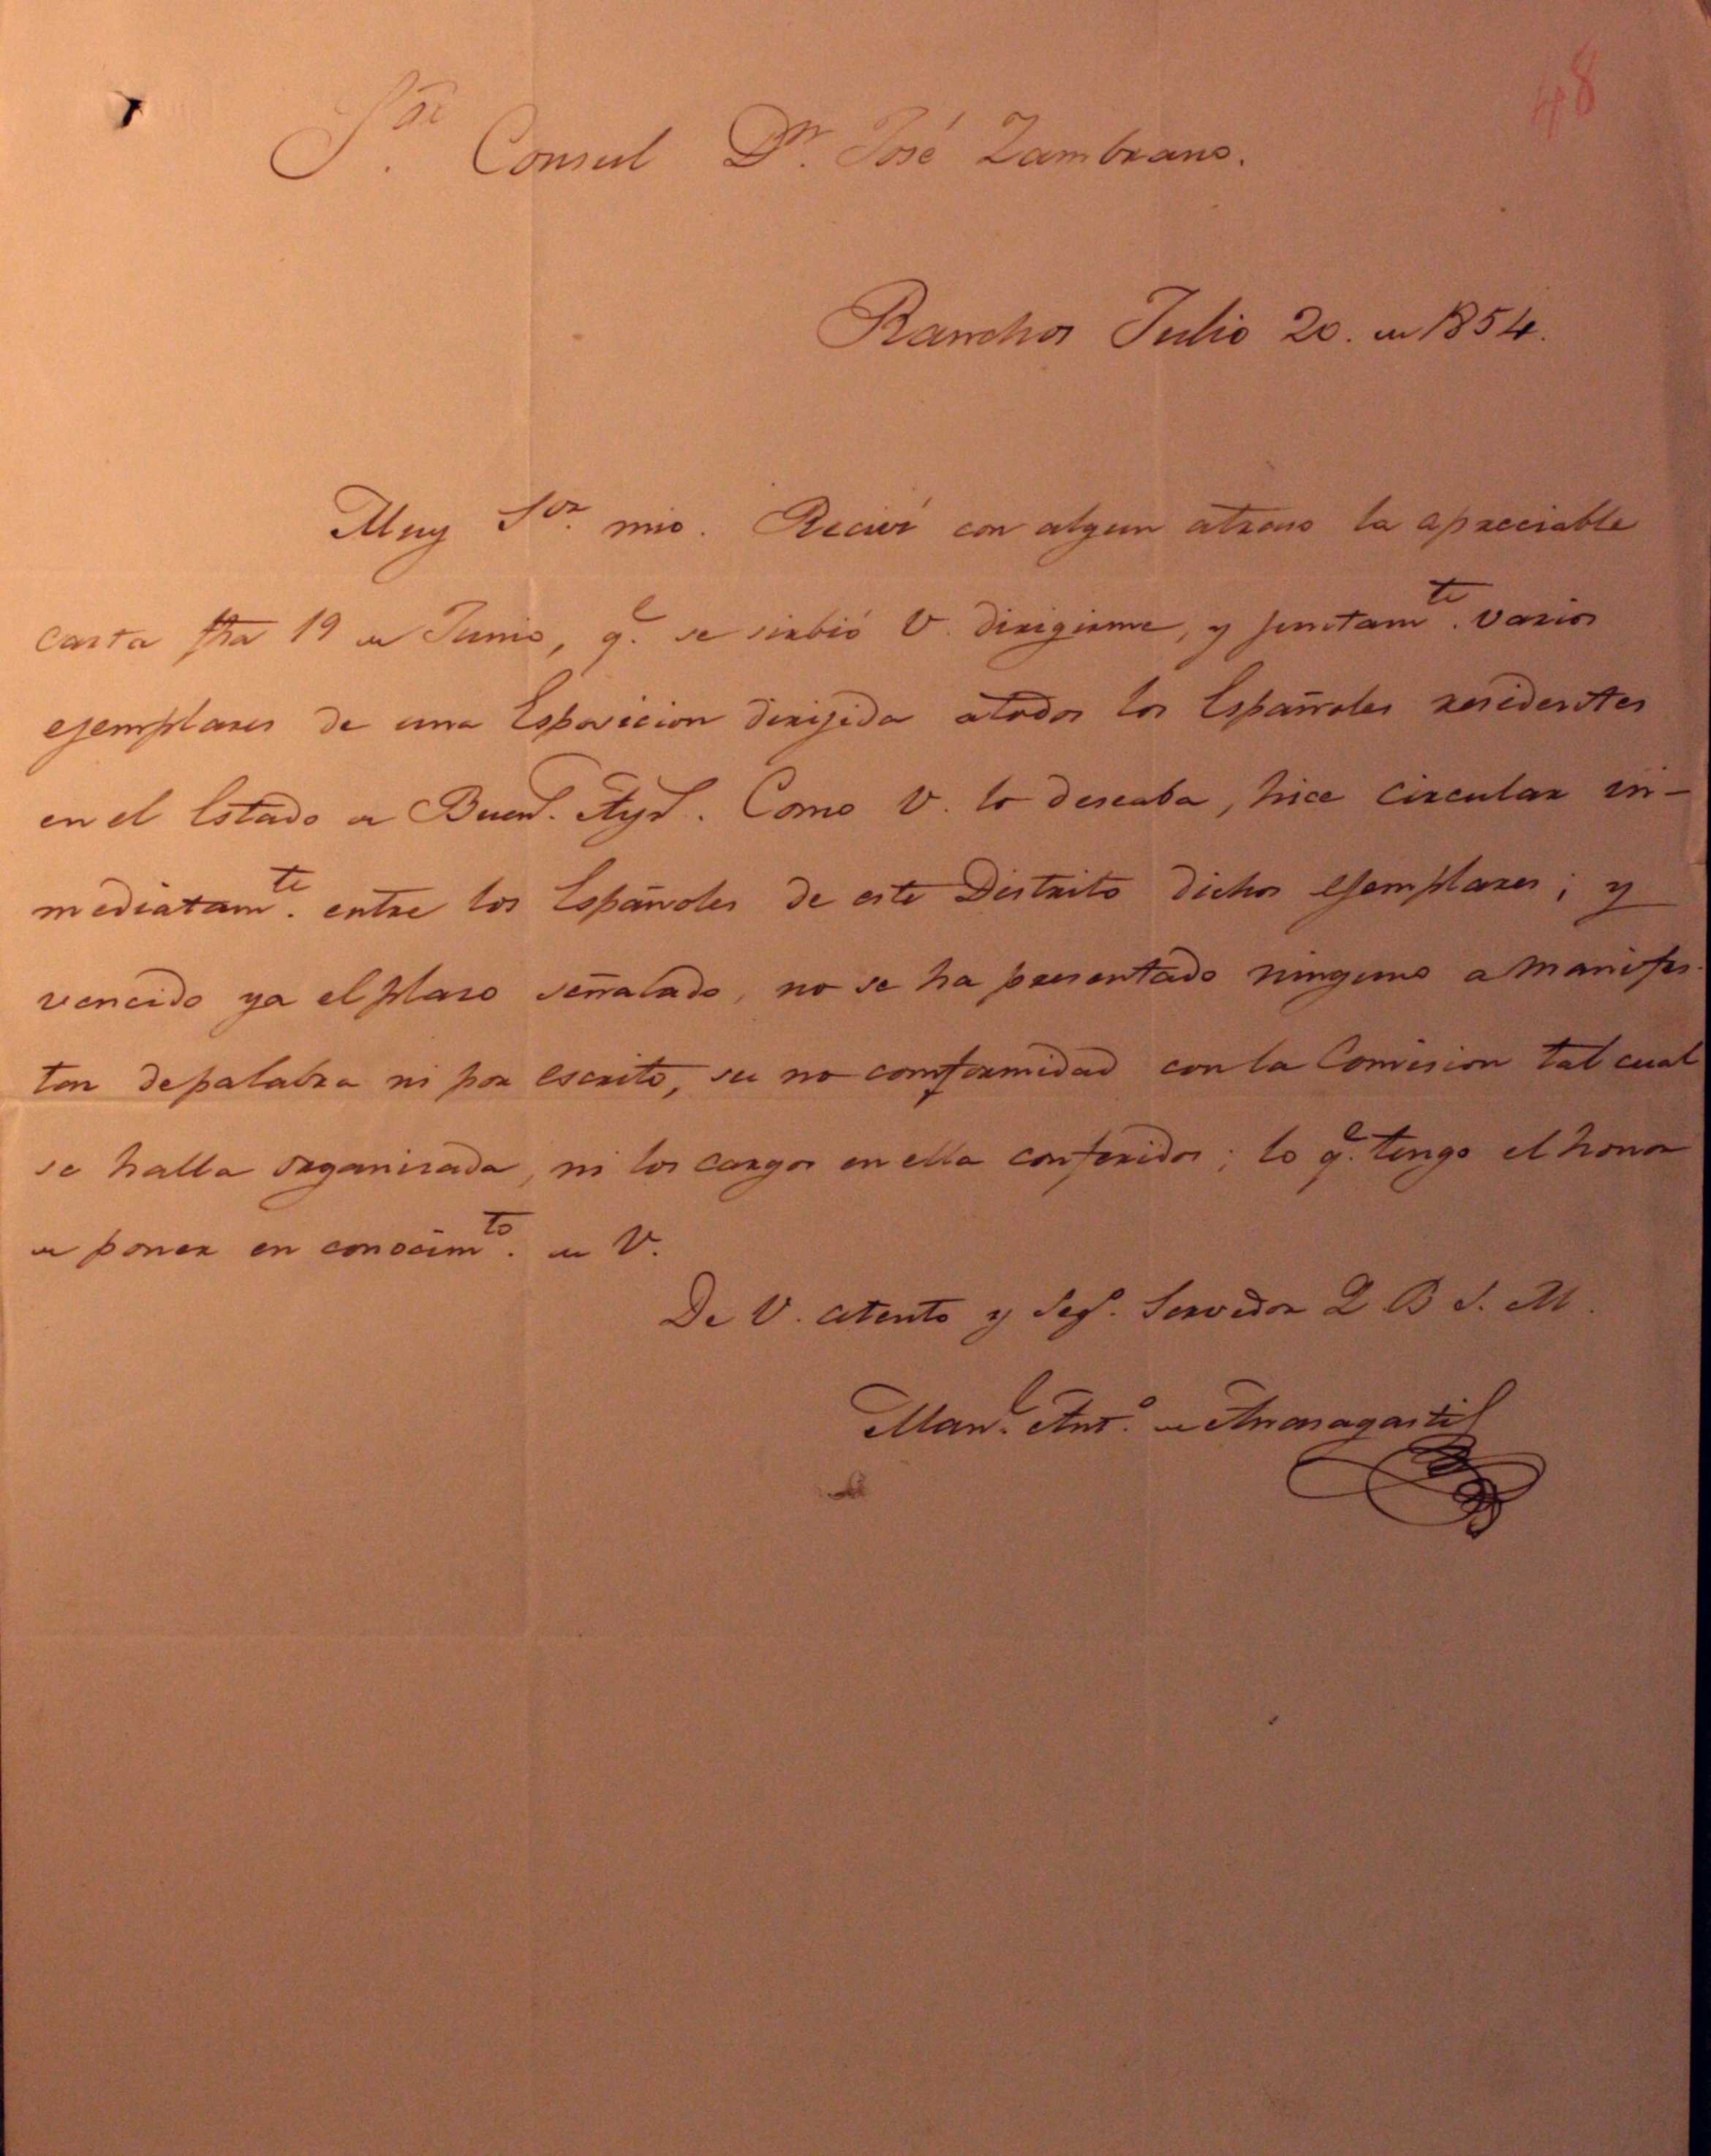 48
Sor. Consul Dn. José Zambrano.
Ranchos Julio 20. de 1854.
Muy Sor. mio. Reciví con algun atraso la apreciable
carta fha 19 de Junio, qe. se sirbió V. dirigirme, y juntamte. varios
ejemplares de una Esposicion dirijida atodos los Españoles residentes
en el Estado de Buens. Ays. Como V. lo deseaba, hice circular in-
mediatamte. entre los Españoles de este Distrito dichos ejemplares; y
vencido ya el plaso señalado, no se ha presentado ninguno a manifes-
tar depalabra ni por escrito, su no comformidad con la Comision tal cual
se halla organisada, ni los cargos en ella conferidos; lo qe. tengo el honor
de poner en conocimto. de V.
De V. atento y Sego. Servidor Q B S. M.
Manl. Anto. de